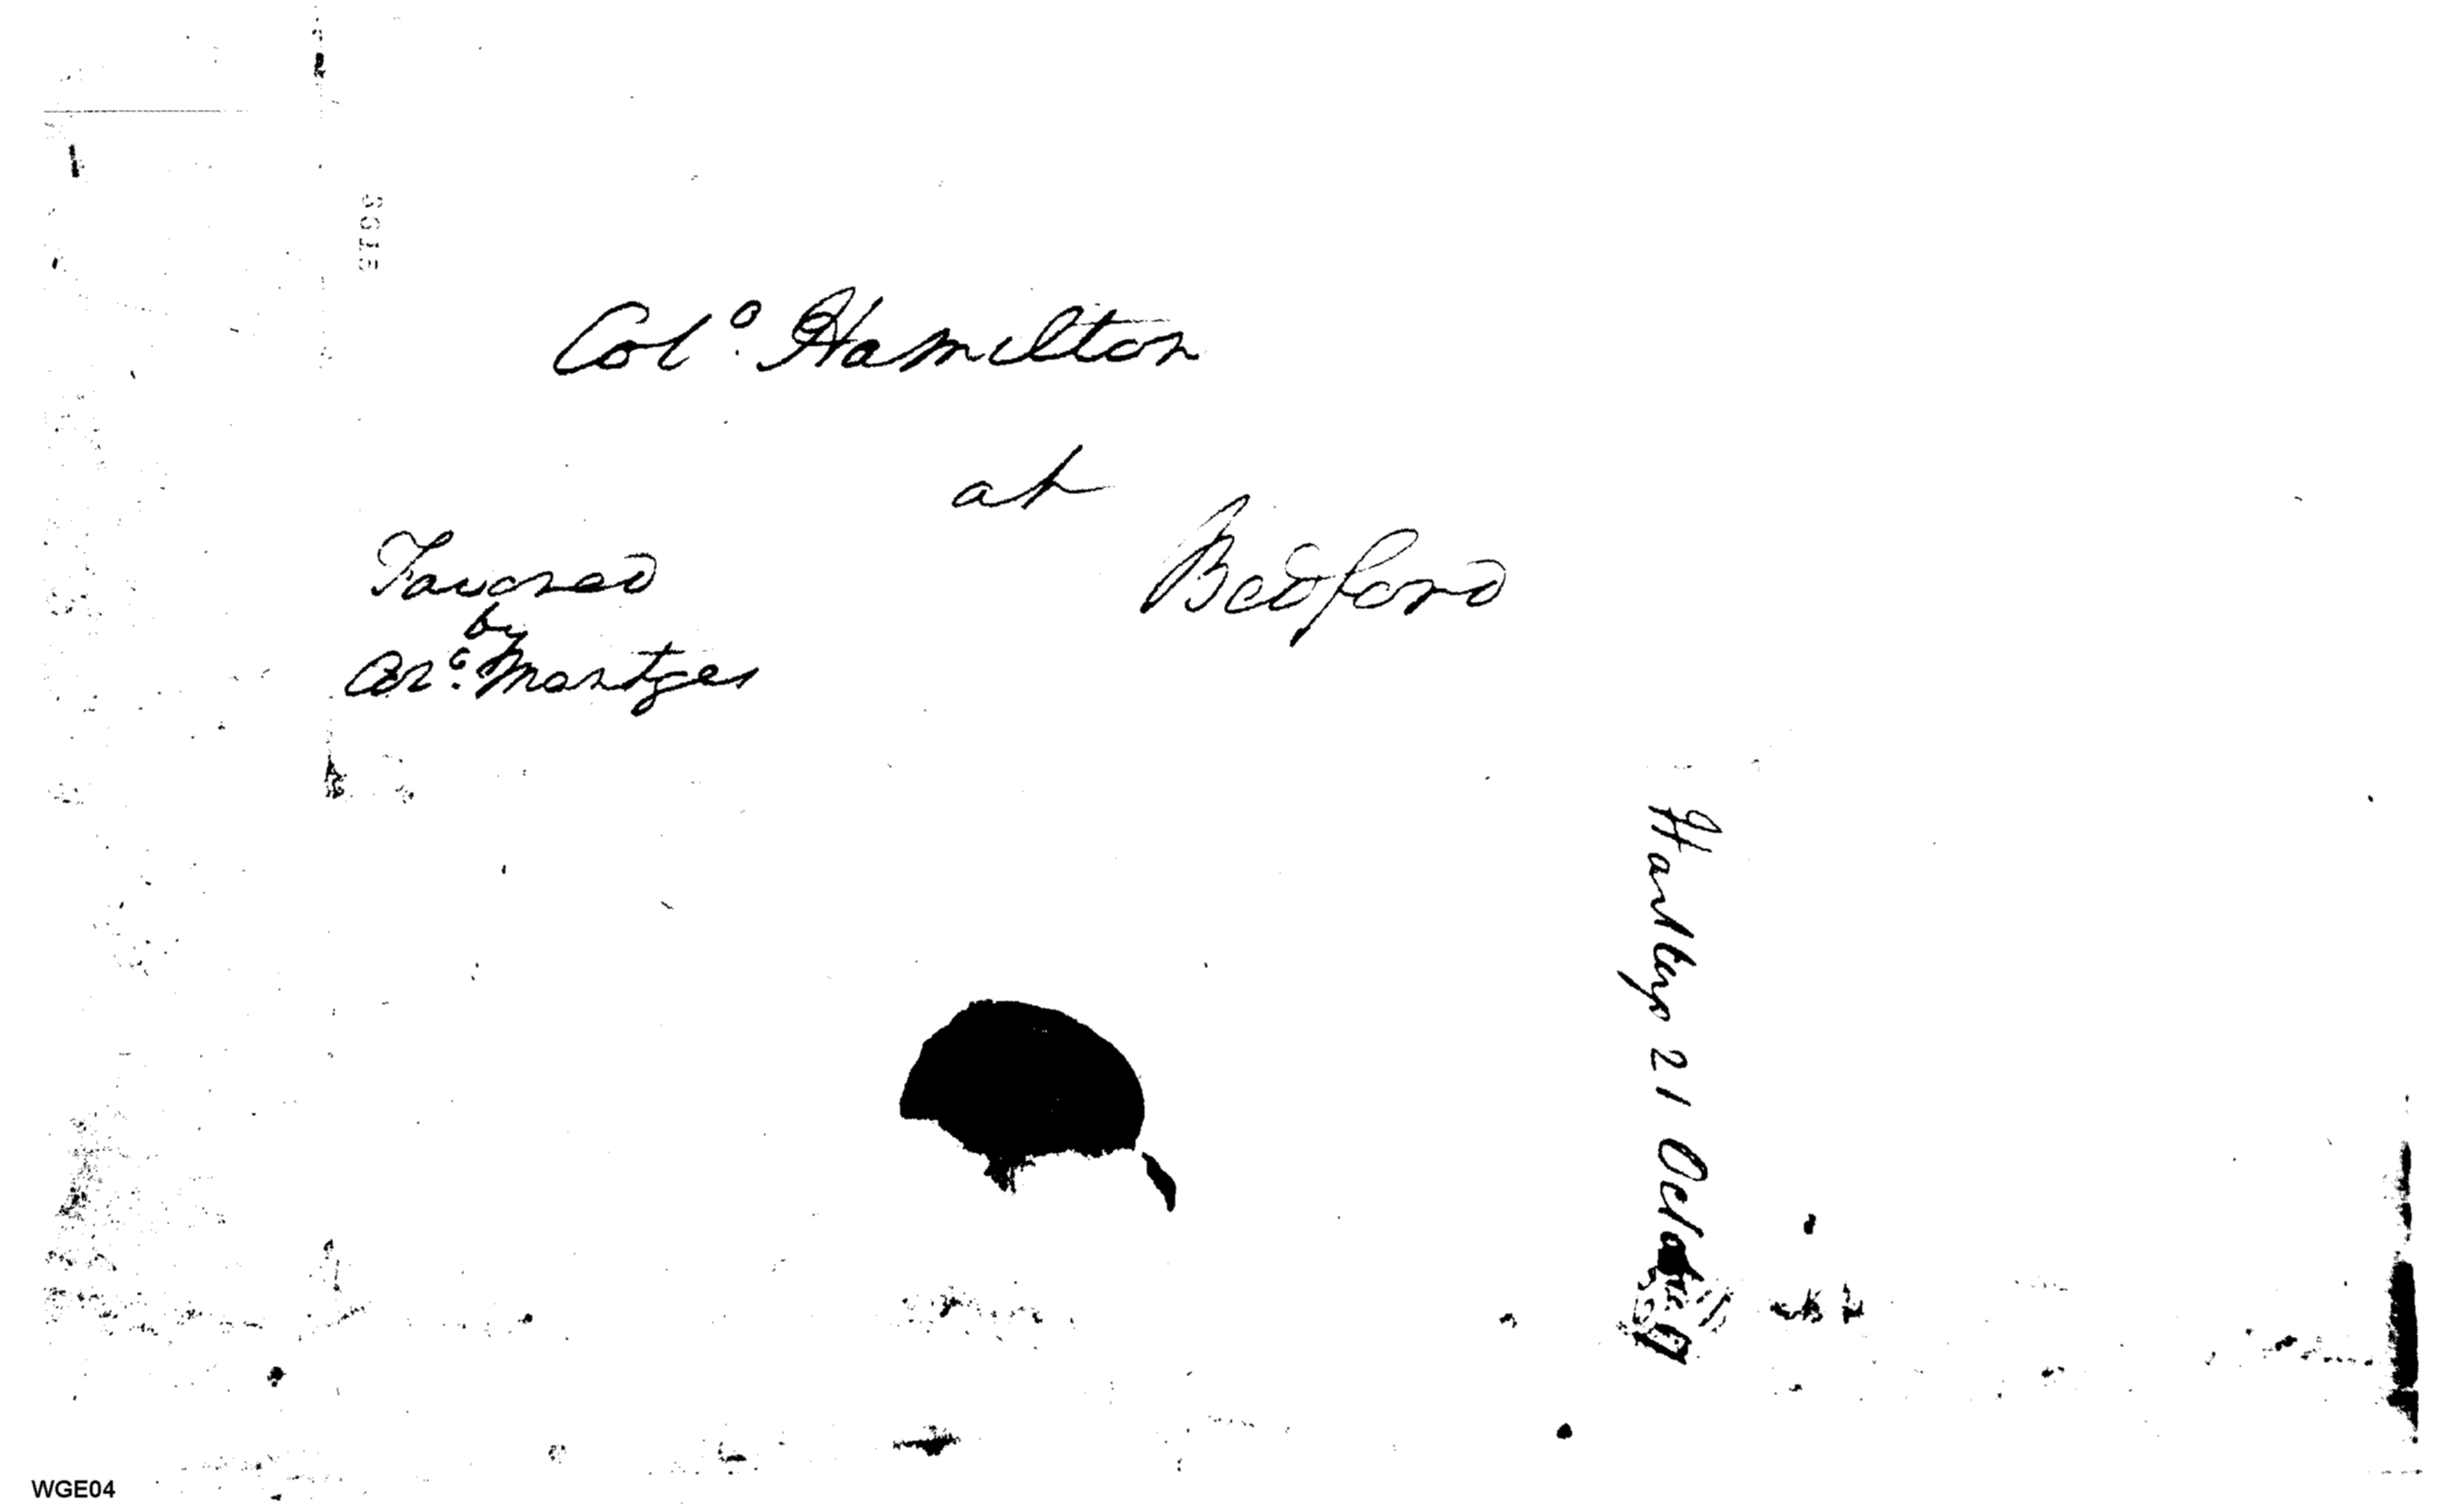 Col.º Hamilton
at
Bedford
Favored
by
Mantges
Hartley 21 Octo
WGE04